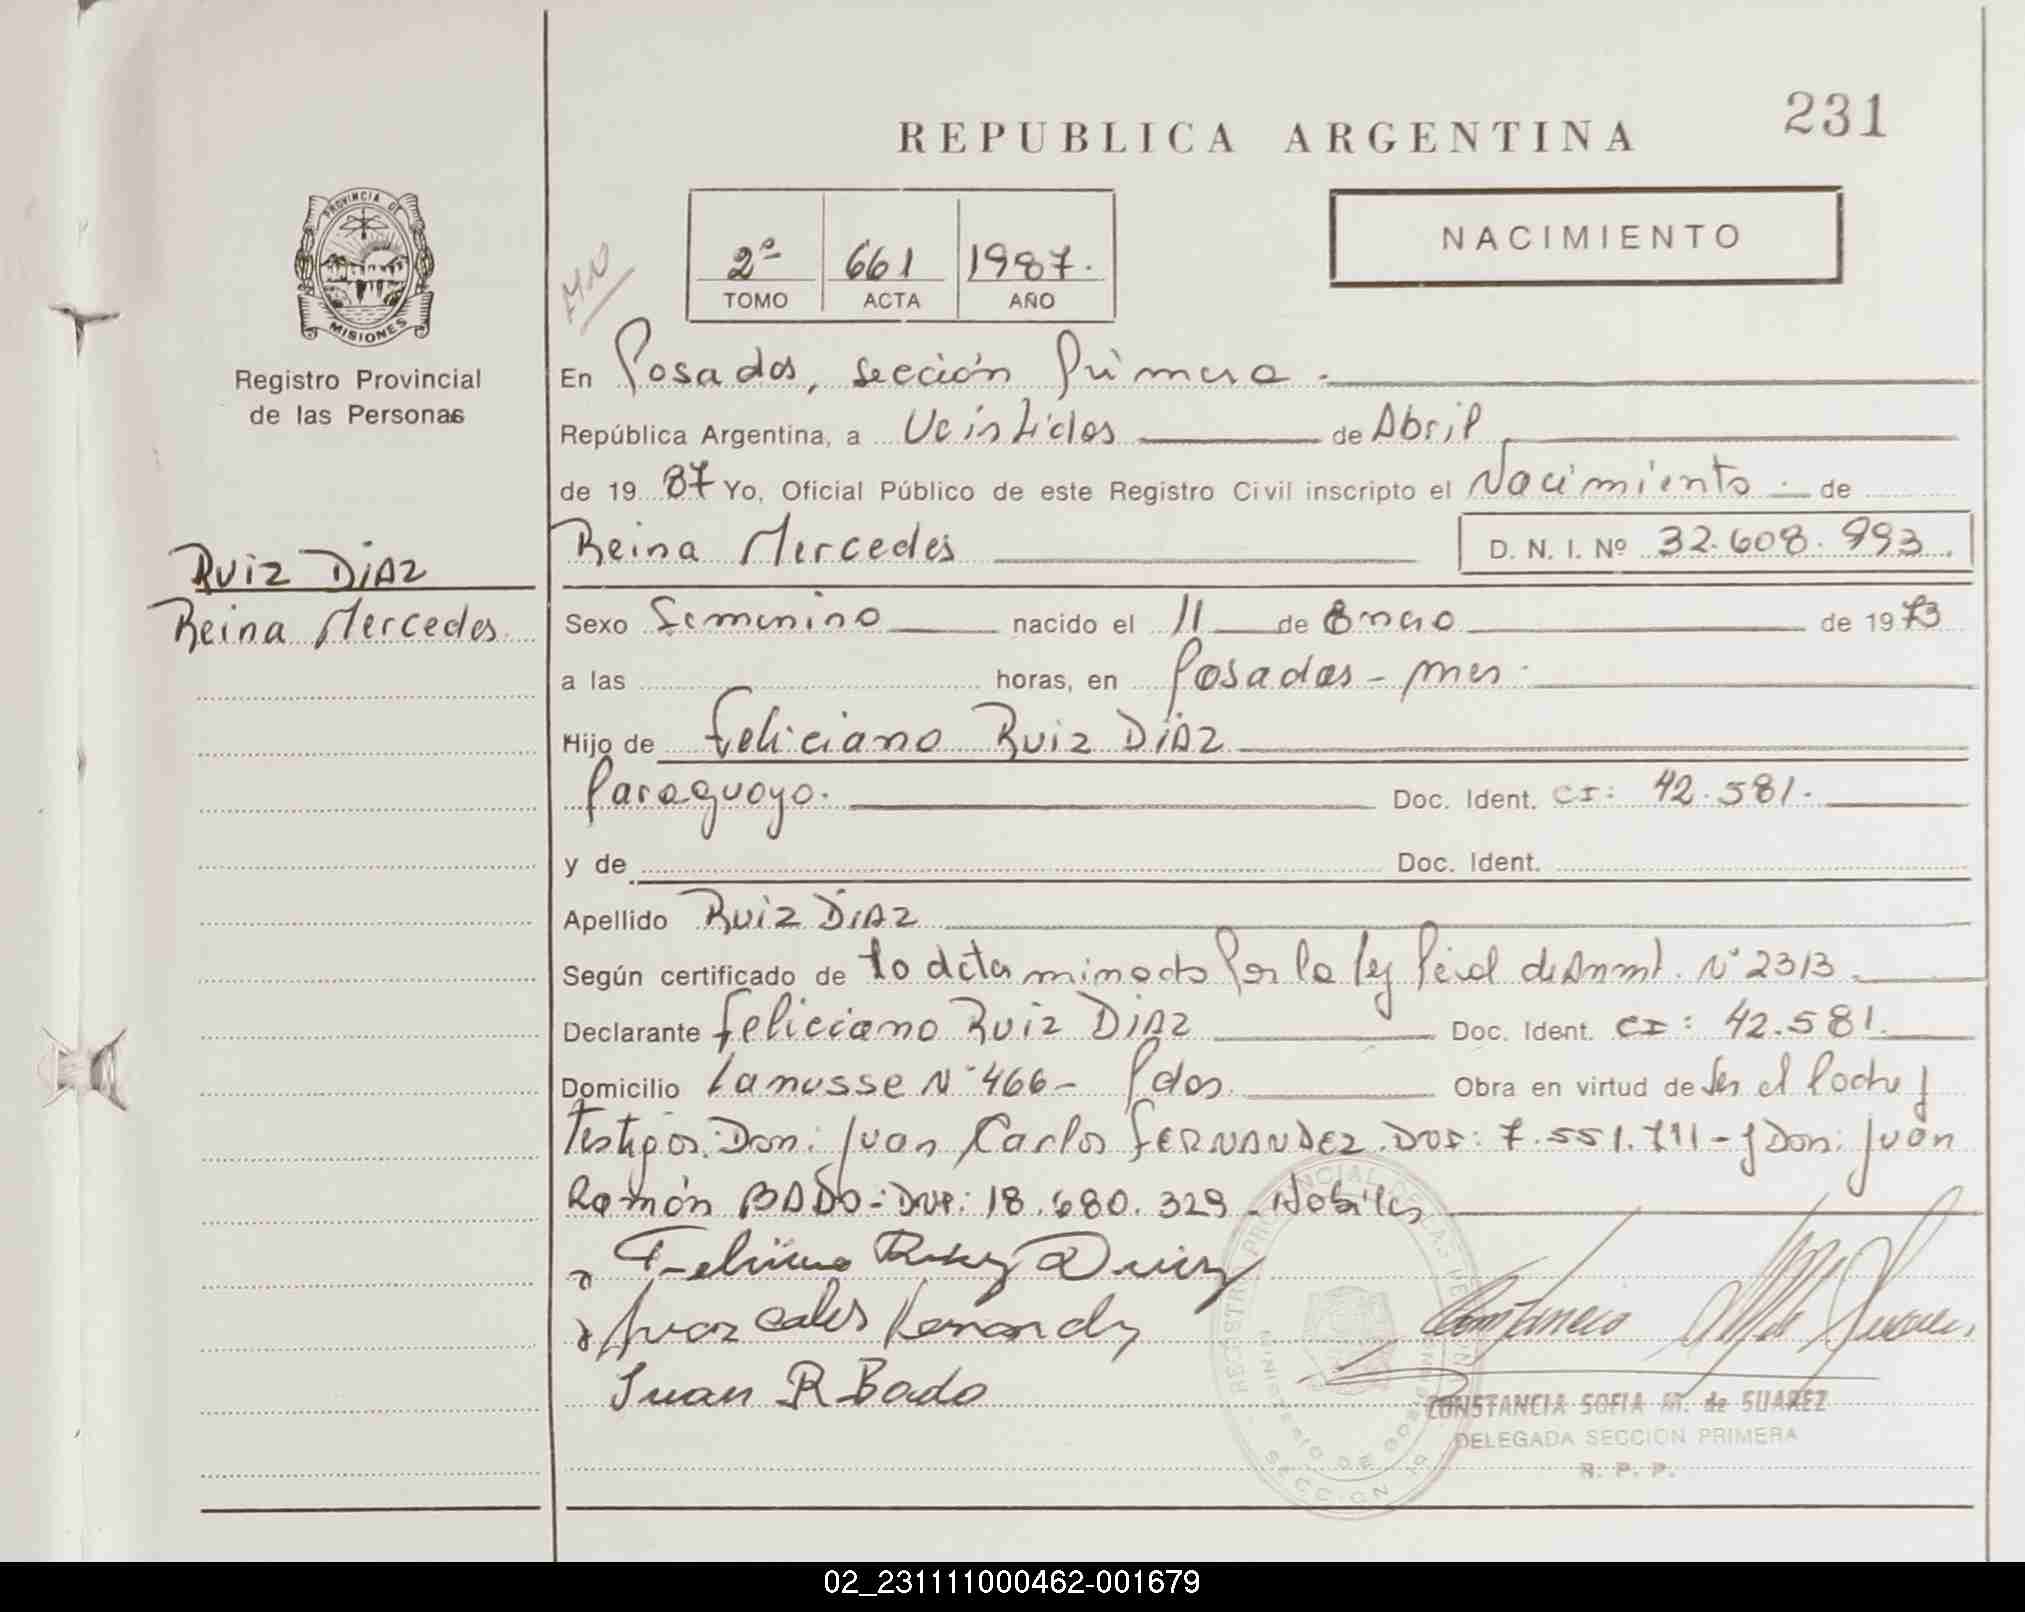 231
REPUBLICA ARGENTINA
NACIMIENTO
PROVINCIA DE
MISIONES
Registro Provincial
de las Personas
2º 661 1987.
TOMO ACTA AÑO
En Posadas, sección Primera.
República Argentina, a Veintidos de Abril
de 1987 Yo, Oficial Público de este Registro Civil inscripto el Nacimiento de
Reina Mercedes D. N. I. Nº 32.608.993.
RUIZ DIAZ
Reina Mercedes
Sexo Femenino nacido el 11 de Enero de 1973
a las horas, en Posadas - mnes.
Hijo de Feliciano RUIZ DIAZ
Paraguayo. Doc. Ident. CI: 42.581.
y de Doc. Ident.
Apellido RUIZ DIAZ
Según certificado de lo determinado por la ley N° 2313
Declarante Feliciano RUIZ DIAZ Doc. Ident. CI: 42.581.
Domicilio Lanusse N° 466- Pdas. Obra en virtud de Ser el Padre y
Testigos: Don: Juan Carlos FERNANDEZ. 7.551.711 - y Don: Juan
Ramón BADO - 18.680.329 - Hábiles
Juan R Bado
REGISTRO PROVINCIAL DE LAS PERSONAS
MINISTERIO DE GOBIERNO
SECCION 1a
CONSTANCIA SOFIA M. de SUAREZ
DELEGADA SECCION PRIMERA
R. P. P.
02_231111000462-001679